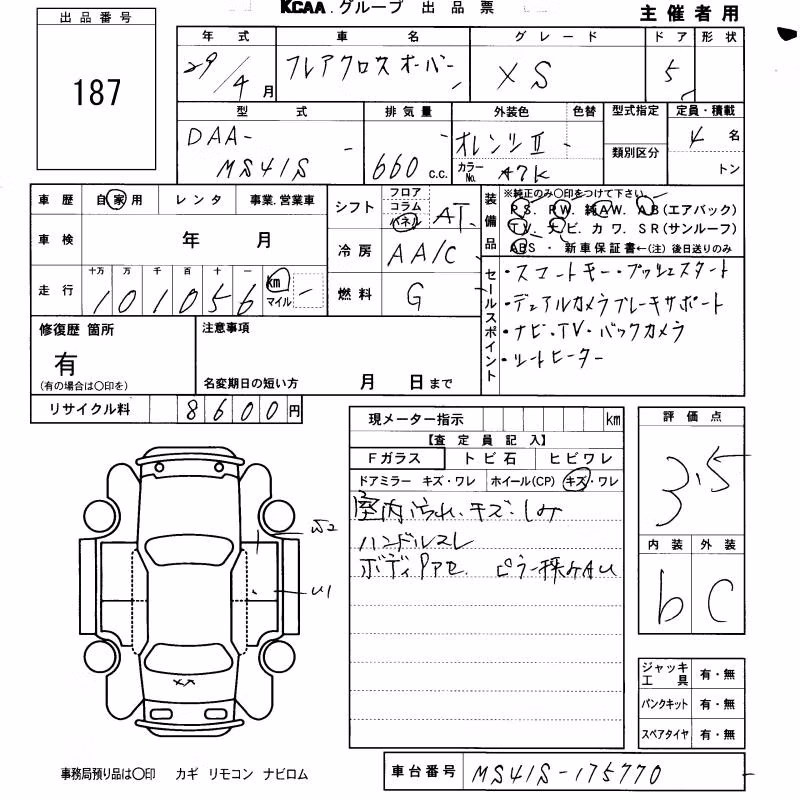 KCAA.グループ 出品票
主催者用
出品番号
187
年式 車名 グレード ドア 形状
29/4月 フレアクロスオーバー XS 5
型式 排気量 外装色 色替 型式指定 定員・積載
DAA-
MS41S 660c.c. オレンジⅡ 4名
カラーNo. A7K 類別区分 トン
車歴 自家用 レンタ 事業.営業車
シフト フロア コラム パネル AT
装備品 ※純正のみ〇印をつけて下さい
PS. PW. 純AW. AB(エアバック)
TV. ナビ. カワ. SR(サンルーフ)
ABS・新車保証書←(注)後日送りのみ
車検 年 月
冷房 AA/C
走行 十万 万 千 百 十 一
101056 km マイル
燃料 G
セールスポイント
・スマートキー・プッシュスタート
・デュアルカメラブレーキサポート
・ナビ・TV・バックカメラ
・シートヒーター
修復歴 箇所
有
(有の場合は〇印を)
注意事項
名変期日の短い方 月 日まで
リサイクル料 8600円
現メーター指示 km
【査定員記入】
Fガラス トビ石 ヒビワレ
ドアミラー キズ・ワレ ホイール(CP) キズ・ワレ
室内汚れ、キズ、しみ
ハンドルスレ
ボディ
AU
評価点
3.5
内装 外装
b C
U1
ジャッキ工具 有・無
パンクキット 有・無
スペアタイヤ 有・無
事務局預り品は〇印 カギ リモコン ナビロム
車台番号 MS41S-175770